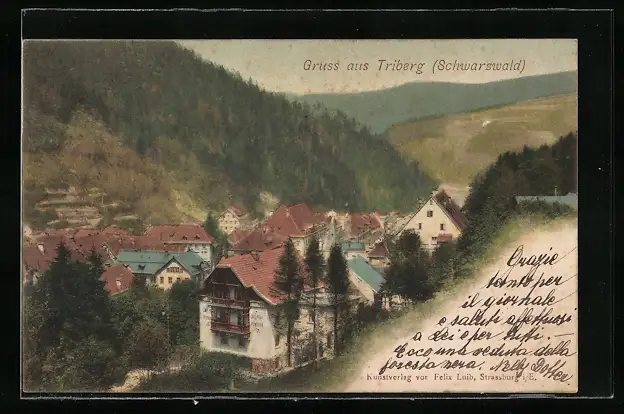 Gruss aus Triberg (Schwarzwald)
Grazie
tanto per
il giornale
e saluti affettuosi
a Lei e per tutti.
Ecco una veduta della
foresta nera. Nelly
Kunstverlag von Felix Luib, Strassburg i/E.